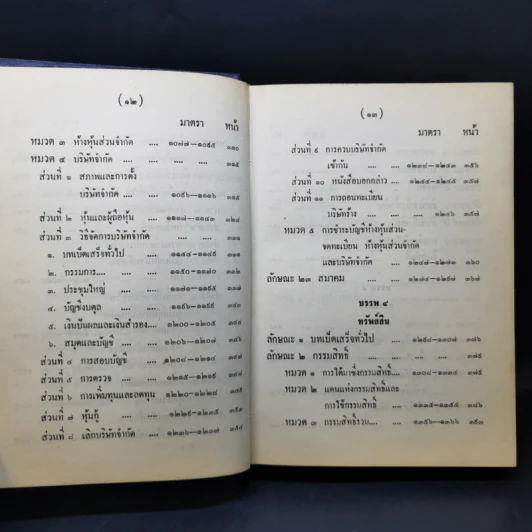 (๑๒)
มาตรา หน้า
หมวด ๓ ห้างหุ้นส่วนจำกัด .... ๑๐๗๗—๑๐๙๕ ๓๑๐
หมวด ๔ บริษัทจำกัด .... .... .... .... ๓๑๕
ส่วนที่ ๑ สภาพและการตั้ง
บริษัทจำกัด .... ๑๐๙๖—๑๑๑๖ ๓๑๕
ส่วนที่ ๒ หุ้นและผู้ถือหุ้น ....
ส่วนที่ ๓ วิธีจัดการบริษัทจำกัด .... ....
๑. บทเบ็ดเสร็จทั่วไป .... ๑๑๔๔—๑๑๔๙
๒. กรรมการ.... .... ๑๑๕๐—๑๑๗๐
๓. ประชุมใหญ่ .... ๑๑๗๑—๑๑๙๕
๔. บัญชีงบดุล ....
๕. เงินปันผลและเงินสำรอง.... ๑๒๐๐—๑๒๐๕
๖. สมุดและบัญชี .... ๑๒๐๖—๑๒๐๗
ส่วนที่ ๔ การสอบบัญชี .... ๑๒๐๘—๑๒๑๔
ส่วนที่ ๕ การตรวจ .... .... ๑๒๑๕—๑๒๑๙
ส่วนที่ ๖ การเพิ่มทุนและลดทุน ....
ส่วนที่ ๗ หุ้นกู้ .... ....
ส่วนที่ ๘ เลิกบริษัทจำกัด .... ๑๒๓๖—๑๒๓๗
(๑๓)
มาตรา หน้า
ส่วนที่ ๙ การควบบริษัทจำกัด
เข้ากัน .... .... ๑๒๓๘—๑๒๔๓ ๓๕๖
ส่วนที่ ๑๐ หนังสือบอกกล่าว .... ๑๒๔๔—๑๒๔๕ ๓๕๗
ส่วนที่ ๑๑ การถอนทะเบียน
บริษัทร้าง .... .... ๑๒๔๖ ๓๕๗
หมวด ๕ การชำระบัญชีห้างหุ้นส่วน
จดทะเบียน ห้างหุ้นส่วนจำกัด
และบริษัทจำกัด .... ๑๒๔๗—๑๒๗๓ ๓๖๐
ลักษณะ ๒๓ สมาคม .... ๑๒๗๔—๑๒๙๗ ๓๖๗
บรรพ ๔
ทรัพย์สิน
ลักษณะ ๑ บทเบ็ดเสร็จทั่วไป .... ๑๒๙๘—๑๓๐๗
ลักษณะ ๒ กรรมสิทธิ์ .... .... ....
หมวด ๑ การได้มาซึ่งกรรมสิทธิ์.... ๑๓๐๘—๑๓๓๔
หมวด ๒ แดนแห่งกรรมสิทธิ์และ
การใช้กรรมสิทธิ์ .... ๑๓๓๕—๑๓๕๕ ๓๘๖
หมวด ๓ กรรมสิทธิ์รวม.... .... ๑๓๕๖—๑๓๖๖ ๓๙๓